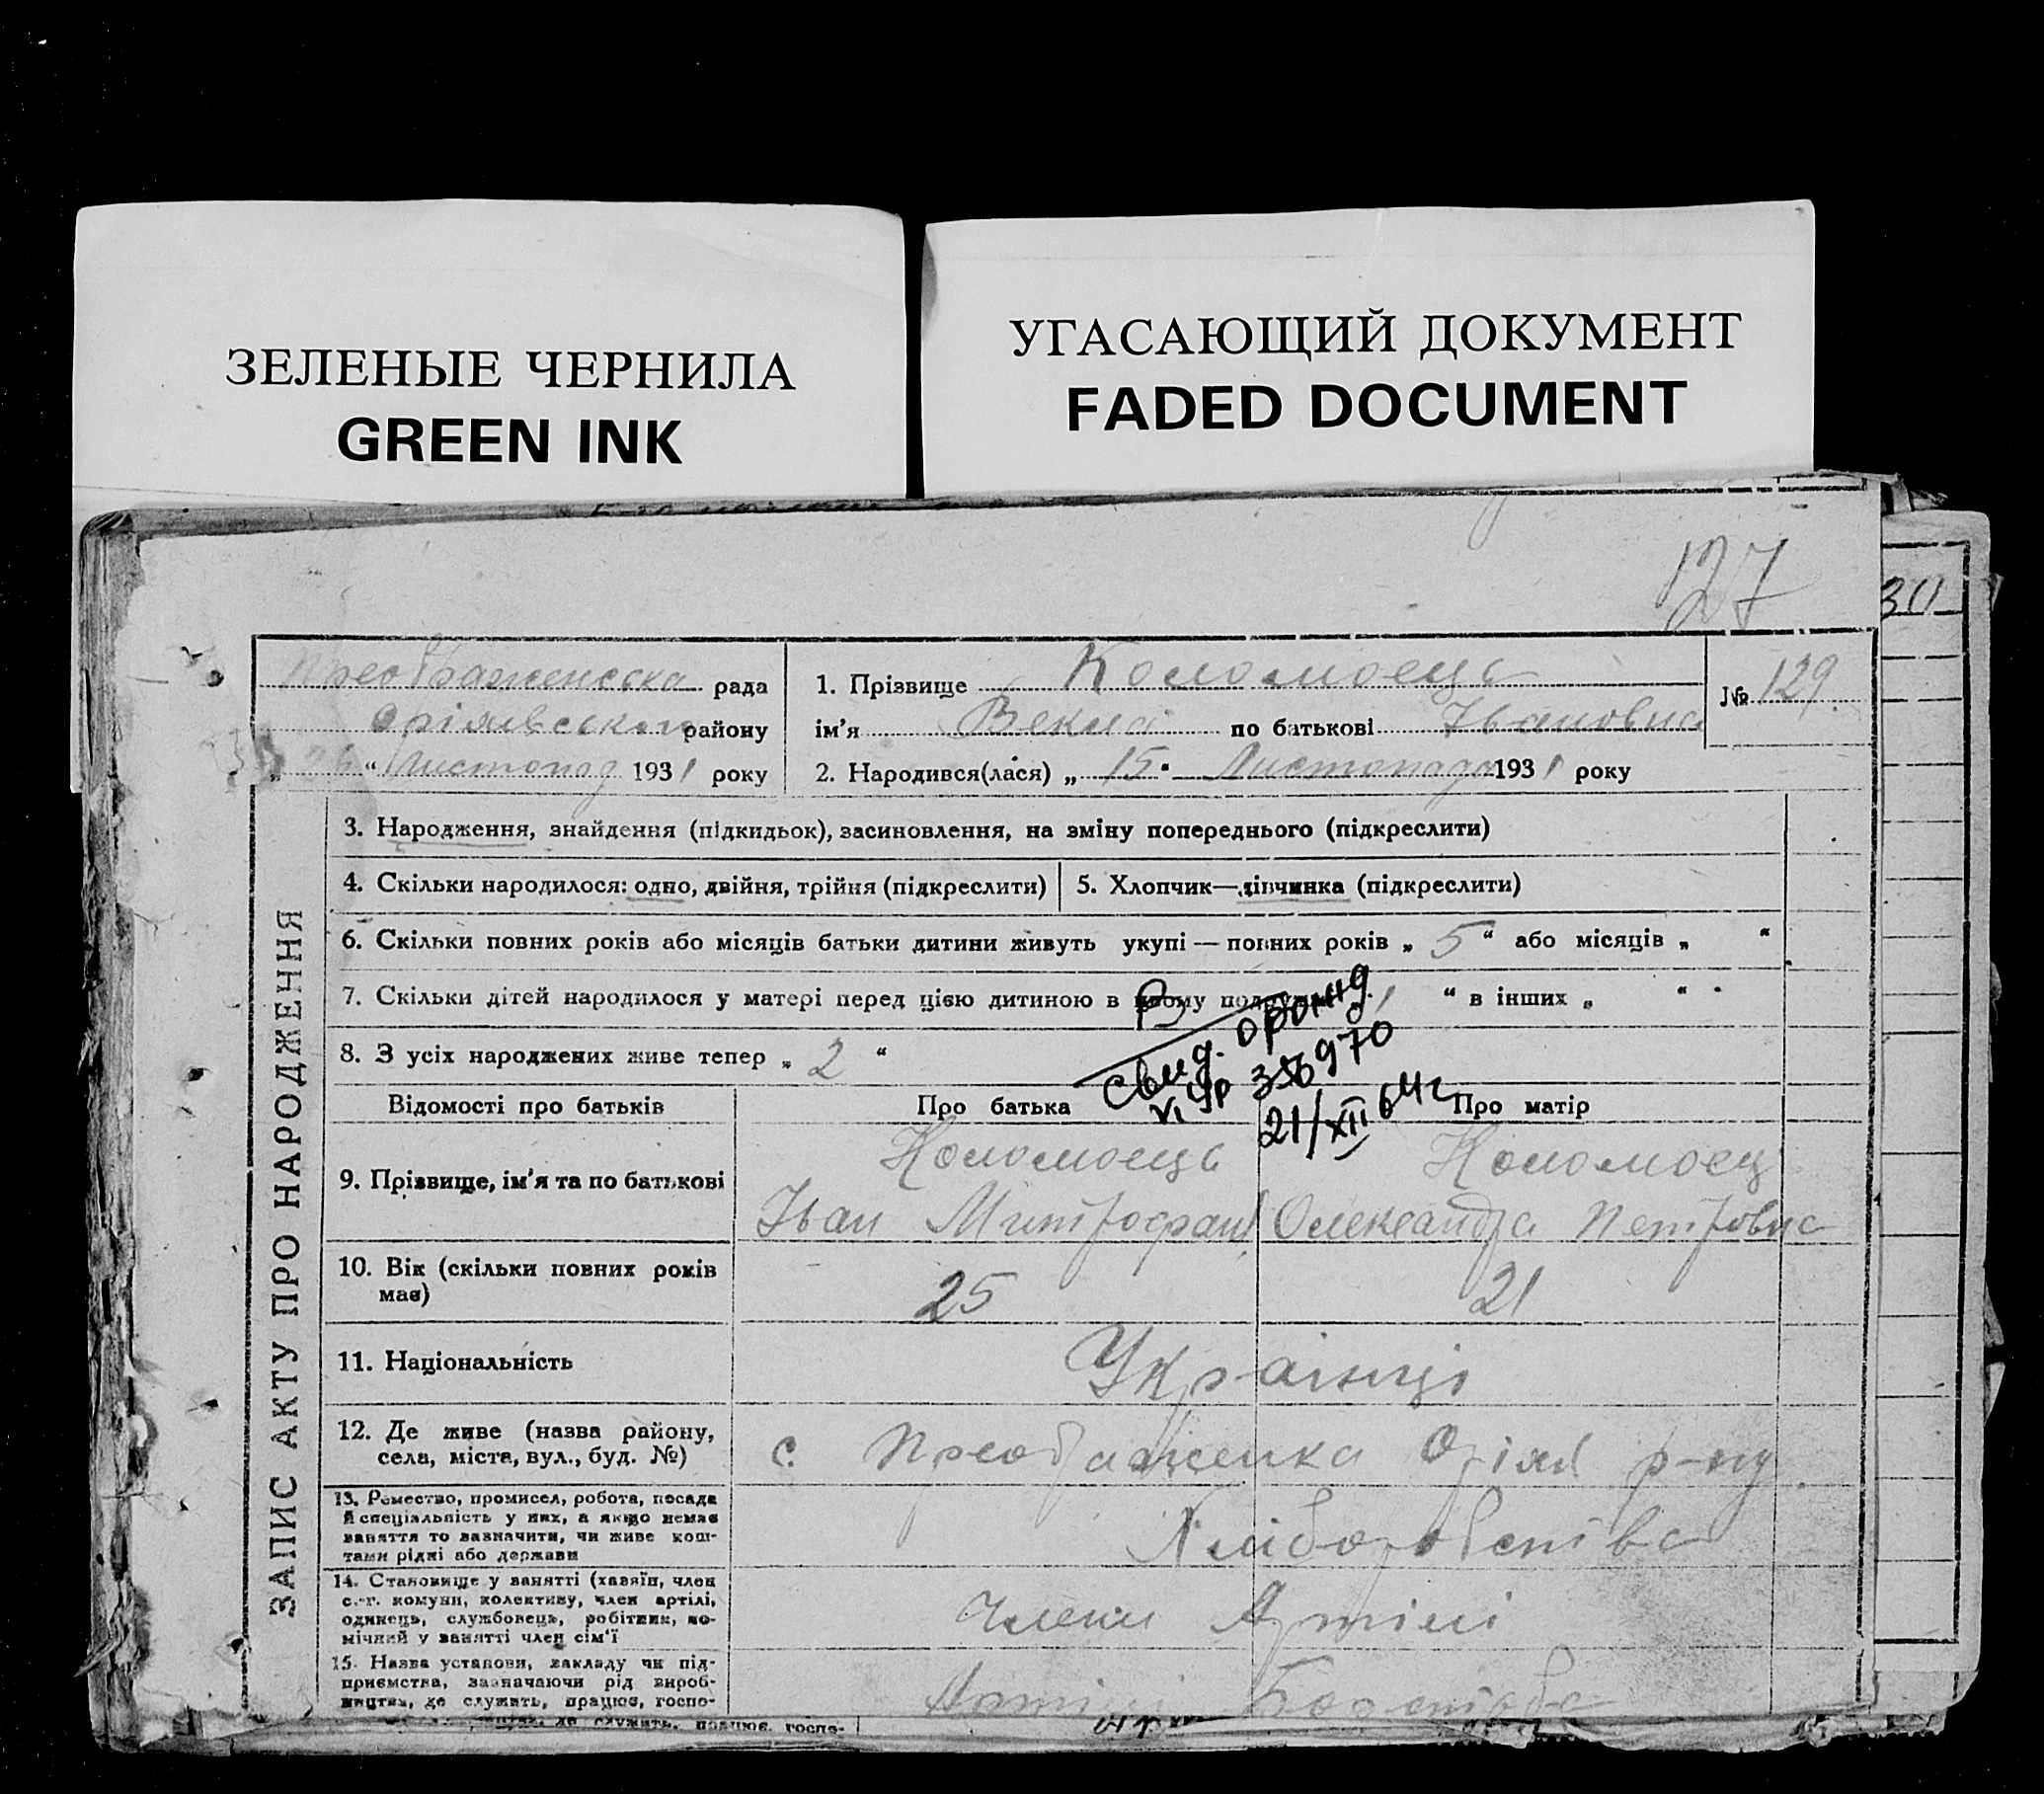 ЗЕЛЕНЫЕ ЧЕРНИЛА
GREEN INK
УГАСАЮЩИЙ ДОКУМЕНТ
FADED DOCUMENT
127
30
Преображенська рада
Орілявського району
"Листопад 1931 року
1. Прізвище Коломоець
№ 129
ім'я Векла по батькові Івановна
2. Народився(лася) „15" Листопада 1931 року
ЗАПИС АКТУ ПРО НАРОДЖЕННЯ
3. Народження, знайдення (підкидьок), засиновлення, на зміну попереднього (підкреслити)
4. Скільки народилося: одно, двійня, трійня (підкреслити)
5. Хлопчик—дівчинка (підкреслити)
6. Скільки повних років або місяців батьки дитини живуть укупі — повних років „5" або місяців „ "
7. Скільки дітей народилося у матері перед цією дитиною в цьому 1 " в інших „ "
8. З усіх народжених живе тепер „2"
свид.
УР 356970
21/XII 64г
Відомості про батьків
Про батька
Про матір
9. Прізвище, ім'я та по батькові
Коломоець
Іван Митрофан
Коломоец
Олександра Петровна
10. Вік (скільки повних років
має)
25
21
11. Національність
Українці
12. Де живе (назва району,
села, міста, вул., буд. №)
с. Преображенка Оріля р-ну
13. Ремество, промисел, робота, посада
й спеціальність у них, а якщо немає
заняття то зазначити, чи живе кош-
тами рідні або держави
Хліборобство
14. Становище у занятті (хазяїн, член
с.-г. комуни, колективу, член артілі,
одинець, службовець, робітник, по-
мічний у занятті член сім'ї
Члени Артілі
15. Назва установи, закладу чи під-
приємства, зазначаючи рід вироб-
ництва, де служить, працює, госпо-
Артілі
де служить, працює, госпо-